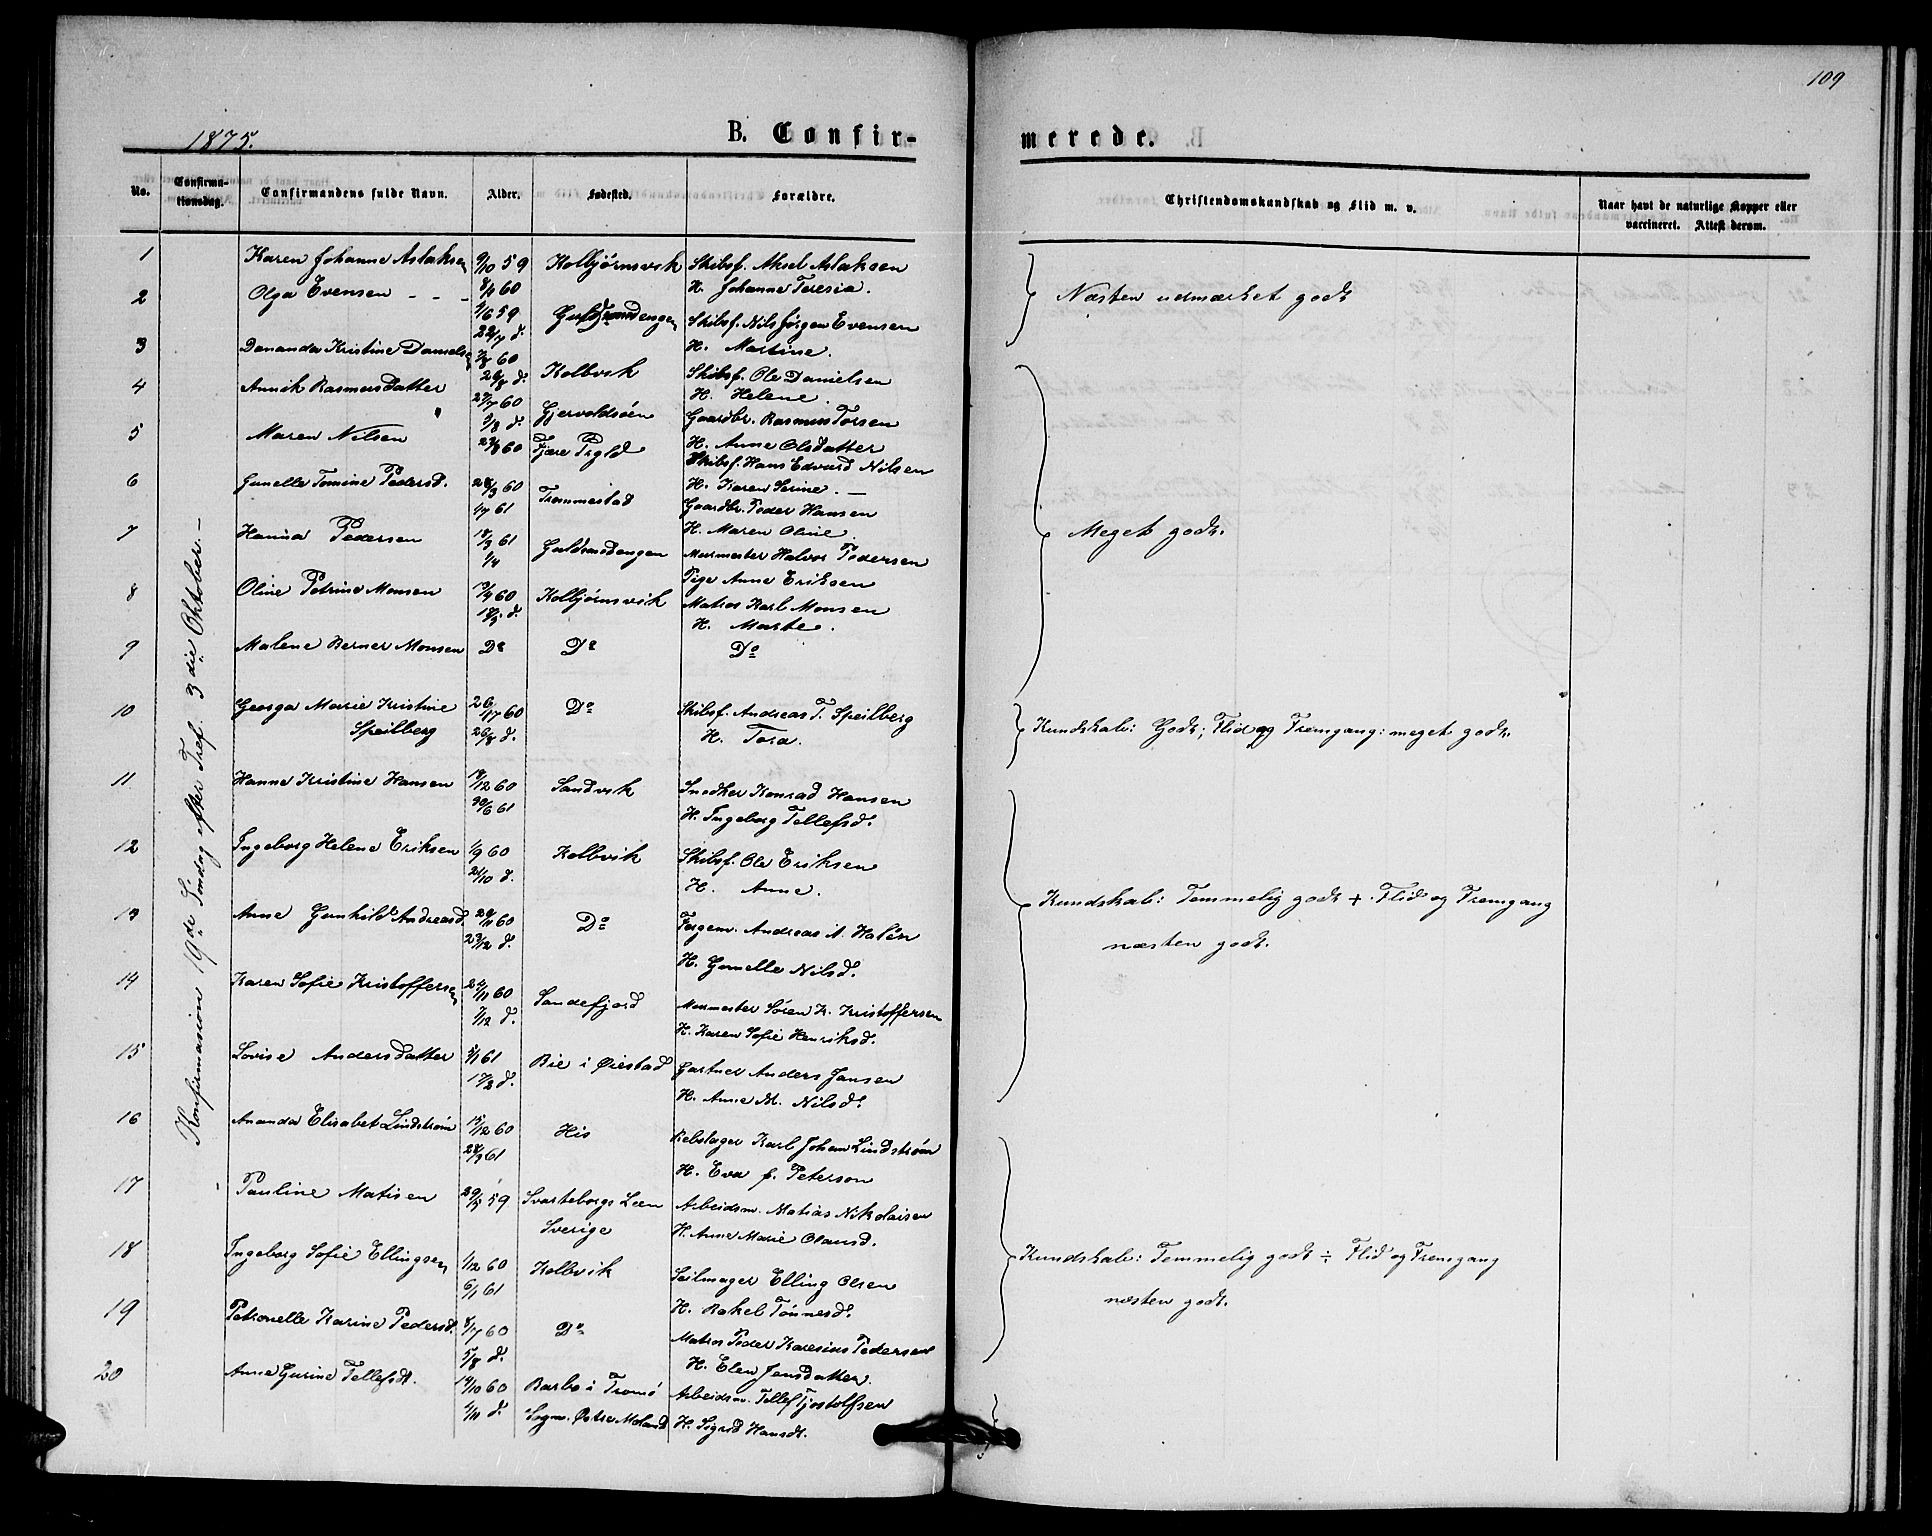 109
1875.
B. Confir-
merede.
No.
Confirma-
tionsdag.
Confirmandens fulde Navn.
Alder.
Fødested.
Forældre.
Christendomskundskab og Flid m. v.
Naar havt de naturlige Kopper eller
vaccineret. Attest derom.
Konfirmasion 19de Søndag efter Tref. 3die Oktober. —
1 Karen Johanne Aslaksen 9/10 59 Kolbjørnsvik Skibsf. Aksel Aslaksen
8/1 60 H. Johanne Teresia.
2 Olga Evensen - - - 1/6 59
22/7 d. Skibsf. Nils Jørgen Evensen
H. Martine.
3 Dananda Kristine Danielsen 7/8 60 Kolbvik Skibsf. Ole Danielsen
26/8 d. H. Helene.
4 Annik Rasmusdatter 27/7 60 Gjervoldsøen Gaardbr. Rasmus Torsen
5/8 d. H. Anne Olsdatter
5 Maren Nilsen 23/8 60 Fjære Prgld Skibsf. Hans Edvard Nilsen
H. Karen Serine. —
6 Gunelle Tomine Pedersd. 28/3 60 Trommestad Gaardbr. Peder Hansen
1/7 61 H. Maren Oline
7 Hanna Pedersen 18/3 61 Guldsmdengen Murmester Halvor Pedersen
1/4 Pige Anne Eriksen
8 Oline Petrine Monsen 60 Kolbjørnsvik Matros Karl Monsen
H. Marte.
9 Malene Berner Monsen Do Do Do
10 Georga Marie Kristine
Speilberg 26/7 60 Do Skibsf. Andreas T. Speilberg
26/8 d. H. Tora.
11 Hanne Kristine Hansen 19/12 60 Sandvik Snedker Konrad Hansen
30/6 61 H. Ingeborg Tellefsd.
12 Ingeborg Helene Eriksen 1/9 60 Kolbvik Skibsf. Ole Eriksen
21/10 d. H. Anne.
13 Anne Gunhild Andreasd. 29/11 60 Do Andreas A. Haløn
23/12 d. H. Gunelle Nilsd.
14 Karen Sofie Kristoffersen 24/11 60 Sandefjord Murmester Søren K. Kristoffersen
7/12 d. H. Karen Sofie Henriksd.
15 Lovise Andersdatter 5/1 61 Bie i Øiestad Gartner Anders Jansen
17/2 d. H. Anne M. Nilsd.
16 Ananda Elisabet Lindstrøm 15/12 60 His Rebslager Karl Johan Lindstrøm
28/3 61 H. Eva f. Peterson
17 Pauline Matisen 29/5 59 Svarteborgs Leen Arbeidsm. Matias Nikolaisen
Sverige H. Anne Marie Olausd.
18 Ingeborg Sofie Ellingsen 1/12 60 Kolbvik Seilmager Elling Olsen
6/1 61 H. Rakel Tønnesd.
19 Petronelle Karine Pedersd. 8/7 60 Do Matros Peder Karesius Pedersen
5/8 d. H. Elen Jensdatter
20 Anne Gurine Tellefsdt. 14/10 60 Barbo i Tromø Arbeidsm. Tellef Tjostolfsen
4/11 d. Sogn. Østre Moland H. Sigrid Hansdt.
Næsten udmærket godt
Meget godt.
Kundskab: Godt; Flid og Fremgang: meget godt.
Kundskab: Temmelig godt + Flid og Fremgang
næsten godt.
Kundskab: Temmelig godt ÷ Flid og Fremgang
næsten godt.